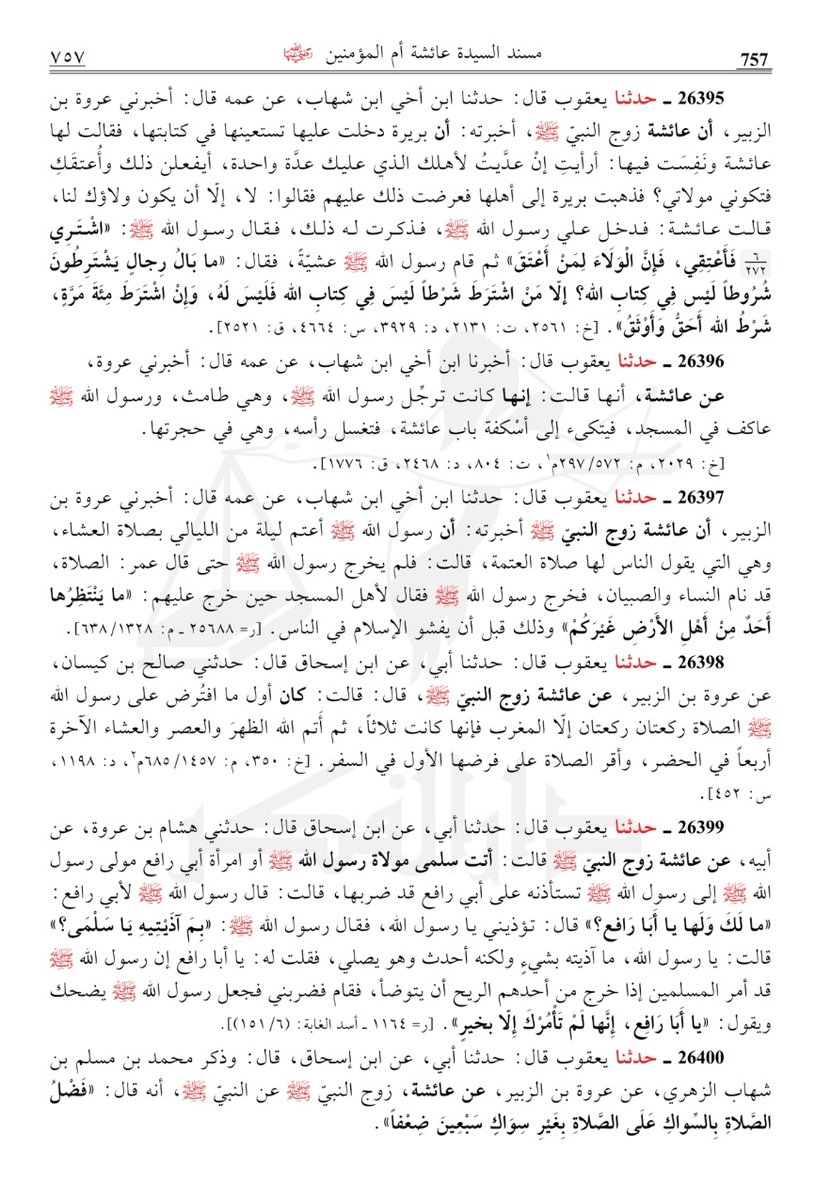 757 مسند السيدة عائشة أم المؤمنين ﷺ ٧٥٧
26395 ـ حدثنا يعقوب قال: حدثنا ابن أخي ابن شهاب، عن عمه قال: أخبرني عروة بن
الزبير، أن عائشة زوج النبيّ ﷺ، أخبرته: أن بريرة دخلت عليها تستعينها في كتابتها، فقالت لها
عائشة ونَفِسَت فيها: أرأيتِ إنْ عدَّيتُ لأهلك الذي عليك عدَّة واحدة، أيفعلن ذلك وأُعتقَكِ
فتكوني مولاتي؟ فذهبت بريرة إلى أهلها فعرضت ذلك عليهم فقالوا: لا، إلّا أن يكون ولاؤك لنا،
قالت عائشة: فدخل علي رسول الله ﷺ، فذكرت له ذلك، فقال رسول الله ﷺ: «اشْتَرِي
٦/٢٧٢ فَأَعْتِقِي، فَإِنَّ الْوَلَاءَ لِمَنْ أَعْتَقَ» ثم قام رسول الله ﷺ عشيّةً، فقال: «ما بَالُ رِجالٍ يَشْتَرِطُونَ
شُرُوطاً لَيْس فِي كِتابِ الله؟ إلّا مَنْ اشْتَرَطَ شَرْطاً لَيْسَ فِي كِتابِ الله فَلَيْسَ لَهُ، وَإِنْ اشْتَرَطَ مِئَةَ مَرَّةٍ،
شَرْطُ الله أَحَقُّ وَأَوْثَقُ». [خ: ٢٥٦١، ت: ٢١٣١، د: ٣٩٢٩، س: ٤٦٦٤، ق: ٢٥٢١].
26396 ـ حدثنا يعقوب قال: أخبرنا ابن أخي ابن شهاب، عن عمه قال: أخبرني عروة،
عن عائشة، أنها قالت: إنها كانت ترجِّل رسول الله ﷺ، وهي طامث، ورسول الله ﷺ
عاكف في المسجد، فيتكىء إلى أسْكفة باب عائشة، فتغسل رأسه، وهي في حجرتها.
[خ: ٢٠٢٩، م: ٢٩٧/٥٧٢م١، ت: ٨٠٤، د: ٢٤٦٨، ق: ١٧٧٦].
26397 ـ حدثنا يعقوب قال: حدثنا ابن أخي ابن شهاب، عن عمه قال: أخبرني عروة بن
الزبير، أن عائشة زوج النبيّ ﷺ أخبرته: أن رسول الله ﷺ أعتم ليلة من الليالي بصلاة العشاء،
وهي التي يقول الناس لها صلاة العتمة، قالت: فلم يخرج رسول الله ﷺ حتى قال عمر: الصلاة،
قد نام النساء والصبيان، فخرج رسول الله ﷺ فقال لأهل المسجد حين خرج عليهم: «ما يَنْتَظِرُها
أَحَدٌ مِنْ أَهْلِ الأَرْضِ غَيْرَكُمْ» وذلك قبل أن يفشو الإسلام في الناس. [ر= ٢٥٦٨٨ ـ م: ٦٣٨/١٣٢٨].
26398 ـ حدثنا يعقوب قال: حدثنا أبي، عن ابن إسحاق قال: حدثني صالح بن كيسان،
عن عروة بن الزبير، عن عائشة زوج النبيّ ﷺ، قال: قالت: كان أول ما افتُرض على رسول الله
ﷺ الصلاة ركعتان ركعتان إلّا المغرب فإنها كانت ثلاثاً، ثم أَتم الله الظهرَ والعصر والعشاء الآخرة
أربعاً في الحضر، وأقر الصلاة على فرضها الأول في السفر. [خ: ٣٥٠، م: ٦٨٥/١٤٥٧م٢، د: ١١٩٨،
س: ٤٥٢].
26399 ـ حدثنا يعقوب قال: حدثنا أبي، عن ابن إسحاق قال: حدثني هشام بن عروة، عن
أبيه، عن عائشة زوج النبيّ ﷺ قالت: أتت سلمى مولاة رسول الله ﷺ أو امرأة أبي رافع مولى رسول
الله ﷺ إلى رسول الله ﷺ تستأذنه على أبي رافع قد ضربها، قالت: قال رسول الله ﷺ لأبي رافع:
«ما لَكَ وَلَها يا أَبَا رَافِعٍ؟» قال: تؤذيني يا رسول الله، فقال رسول الله ﷺ: «بِمَ آذَيْتِيهِ يَا سَلْمَى؟»
قالت: يا رسول الله، ما آذيته بشيءٍ ولكنه أحدث وهو يصلي، فقلت له: يا أبا رافع إن رسول الله ﷺ
قد أمر المسلمين إذا خرج من أحدهم الريح أن يتوضأ، فقام فضربني فجعل رسول الله ﷺ يضحك
ويقول: «يا أَبَا رَافِعٍ، إِنَّها لَمْ تَأْمُرْكَ إِلّا بخيرٍ». [ر= ١١٦٤ ـ أسد الغابة: (٦/ ١٥١)].
26400 ـ حدثنا يعقوب قال: حدثنا أبي، عن ابن إسحاق، قال: وذكر محمد بن مسلم بن
شهاب الزهري، عن عروة بن الزبير، عن عائشة، زوج النبيّ ﷺ عن النبيّ ﷺ، أنه قال: «فَضْلُ
الصَّلاةِ بِالسِّواكِ عَلَى الصَّلاةِ بِغَيْرِ سِواكٍ سَبْعِينَ ضِعْفاً».